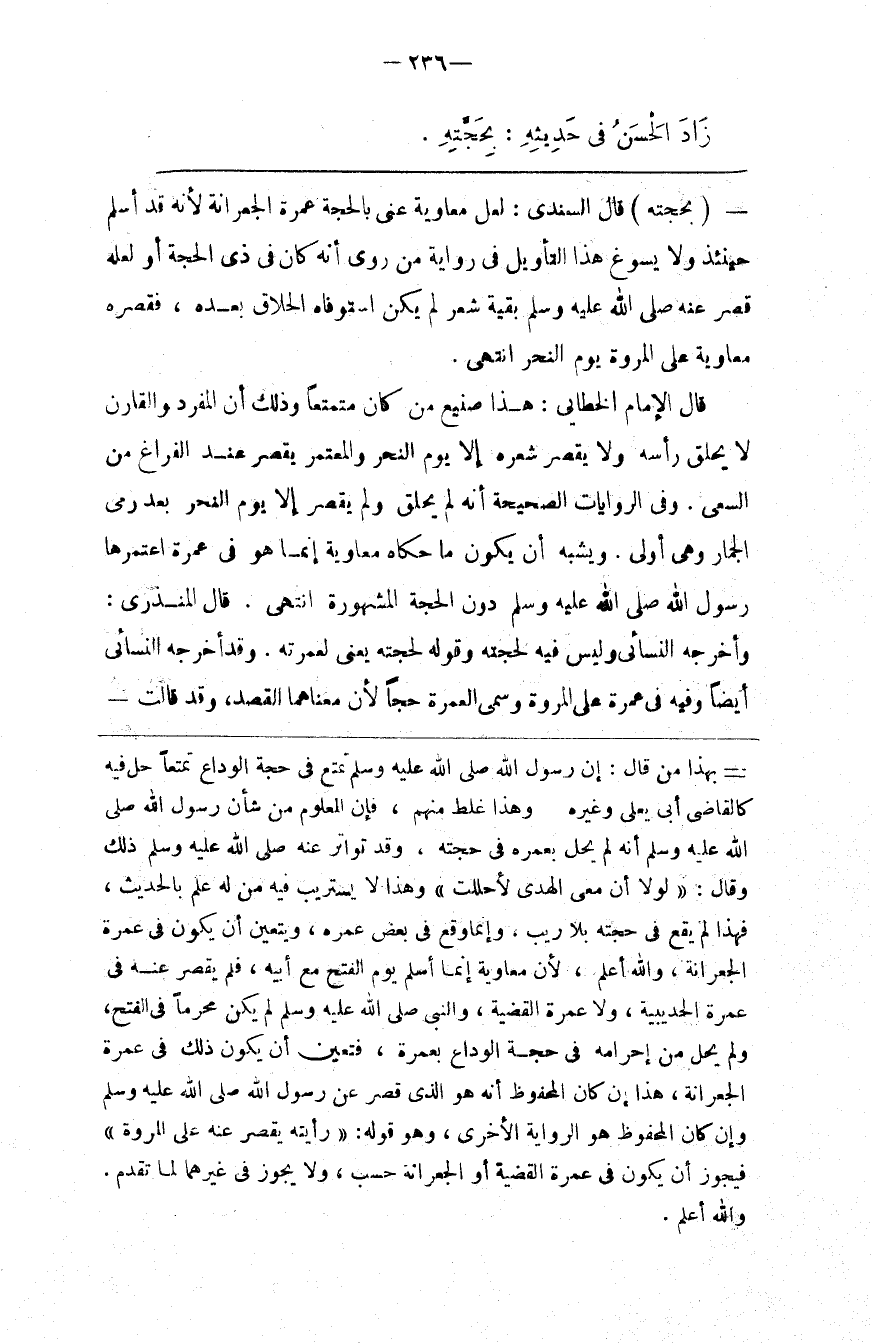 — ٢٣٦ —
زَادَ الْحَسَنُ فى حَدِيثِهِ : بِحَجَّتِهِ .
— ( بحجته ) قال السندى : لعل معاوية عنى بالحجة عمرة الجعرانة لأنه قد أسلم
حينئذ ولا يسوغ هذا التأويل فى رواية من روى أنه كان فى ذى الحجة أو لعله
قصر عنه صلى الله عليه وسلم بقية شعر لم يكن استوفاه الحلاق بعـده ، فقصره
معاوية على المروة يوم النحر انتهى .
قال الإمام الخطابى : هـذا صنيع من كان متمتعاً وذلك أن المفرد والقارن
لا يحلق رأسه ولا يقصر شعره إلا يوم النحر والمعتمر يقصر عنـد الفراغ من
السعى . وفى الروايات الصحيحة أنه لم يحلق ولم يقصر إلا يوم النحر بعد رمى
الجمار وهى أولى . ويشبه أن يكون ما حكاه معاوية إنمـا هو فى عمرة اعتمرها
رسول الله صلى الله عليه وسلم دون الحجة المشهورة انتهى . قال المنـذرى :
وأخرجه النسائى وليس فيه لحجته وقوله لحجته يعنى لعمرته . وقد أخرجه النسائى
أيضاً وفيه فى عمرة على المروة وسمى العمرة حجاً لأن معناهما القصد، وقد قالت —
= بهذا من قال : إن رسول الله صلى الله عليه وسلم تمتع فى حجة الوداع تمتعاً حل فيه
كالقاضى أبى يعلى وغيره وهذا غلط منهم ، فإن المعلوم من شأن رسول الله صلى
الله عليه وسلم أنه لم يحل بعمره فى حجته ، وقد تواتر عنه صلى الله عليه وسلم ذلك
وقال : « لولا أن معى الهدى لأحللت » وهذا لا يستريب فيه من له علم بالحديث ،
فهذا لم يقع فى حجته بلا ريب ، وإنما وقع فى بعض عمره ، ويتعين أن يكون فى عمرة
الجعرانة ، والله أعلم ، لأن معاوية إنمـا أسلم يوم الفتح مع أبيه ، فلم يقصر عنـه فى
عمرة الحديبية ، ولا عمرة القضية ، والنبى صلى الله عليه وسلم لم يكن محرماً فى الفتح،
ولم يحل من إحرامه فى حجـة الوداع بعمرة ، فتعين أن يكون ذلك فى عمرة
الجعرانة ، هذا إن كان المحفوظ أنه هو الذى قصر عن رسول الله صلى الله عليه وسلم
وإن كان المحفوظ هو الرواية الأخرى ، وهو قوله: « رأيته يقصر عنه على المروة »
فيجوز أن يكون فى عمرة القضية أو الجعرانة حسب ، ولا يجوز فى غيرهما لمـا تقدم .
والله أعلم .